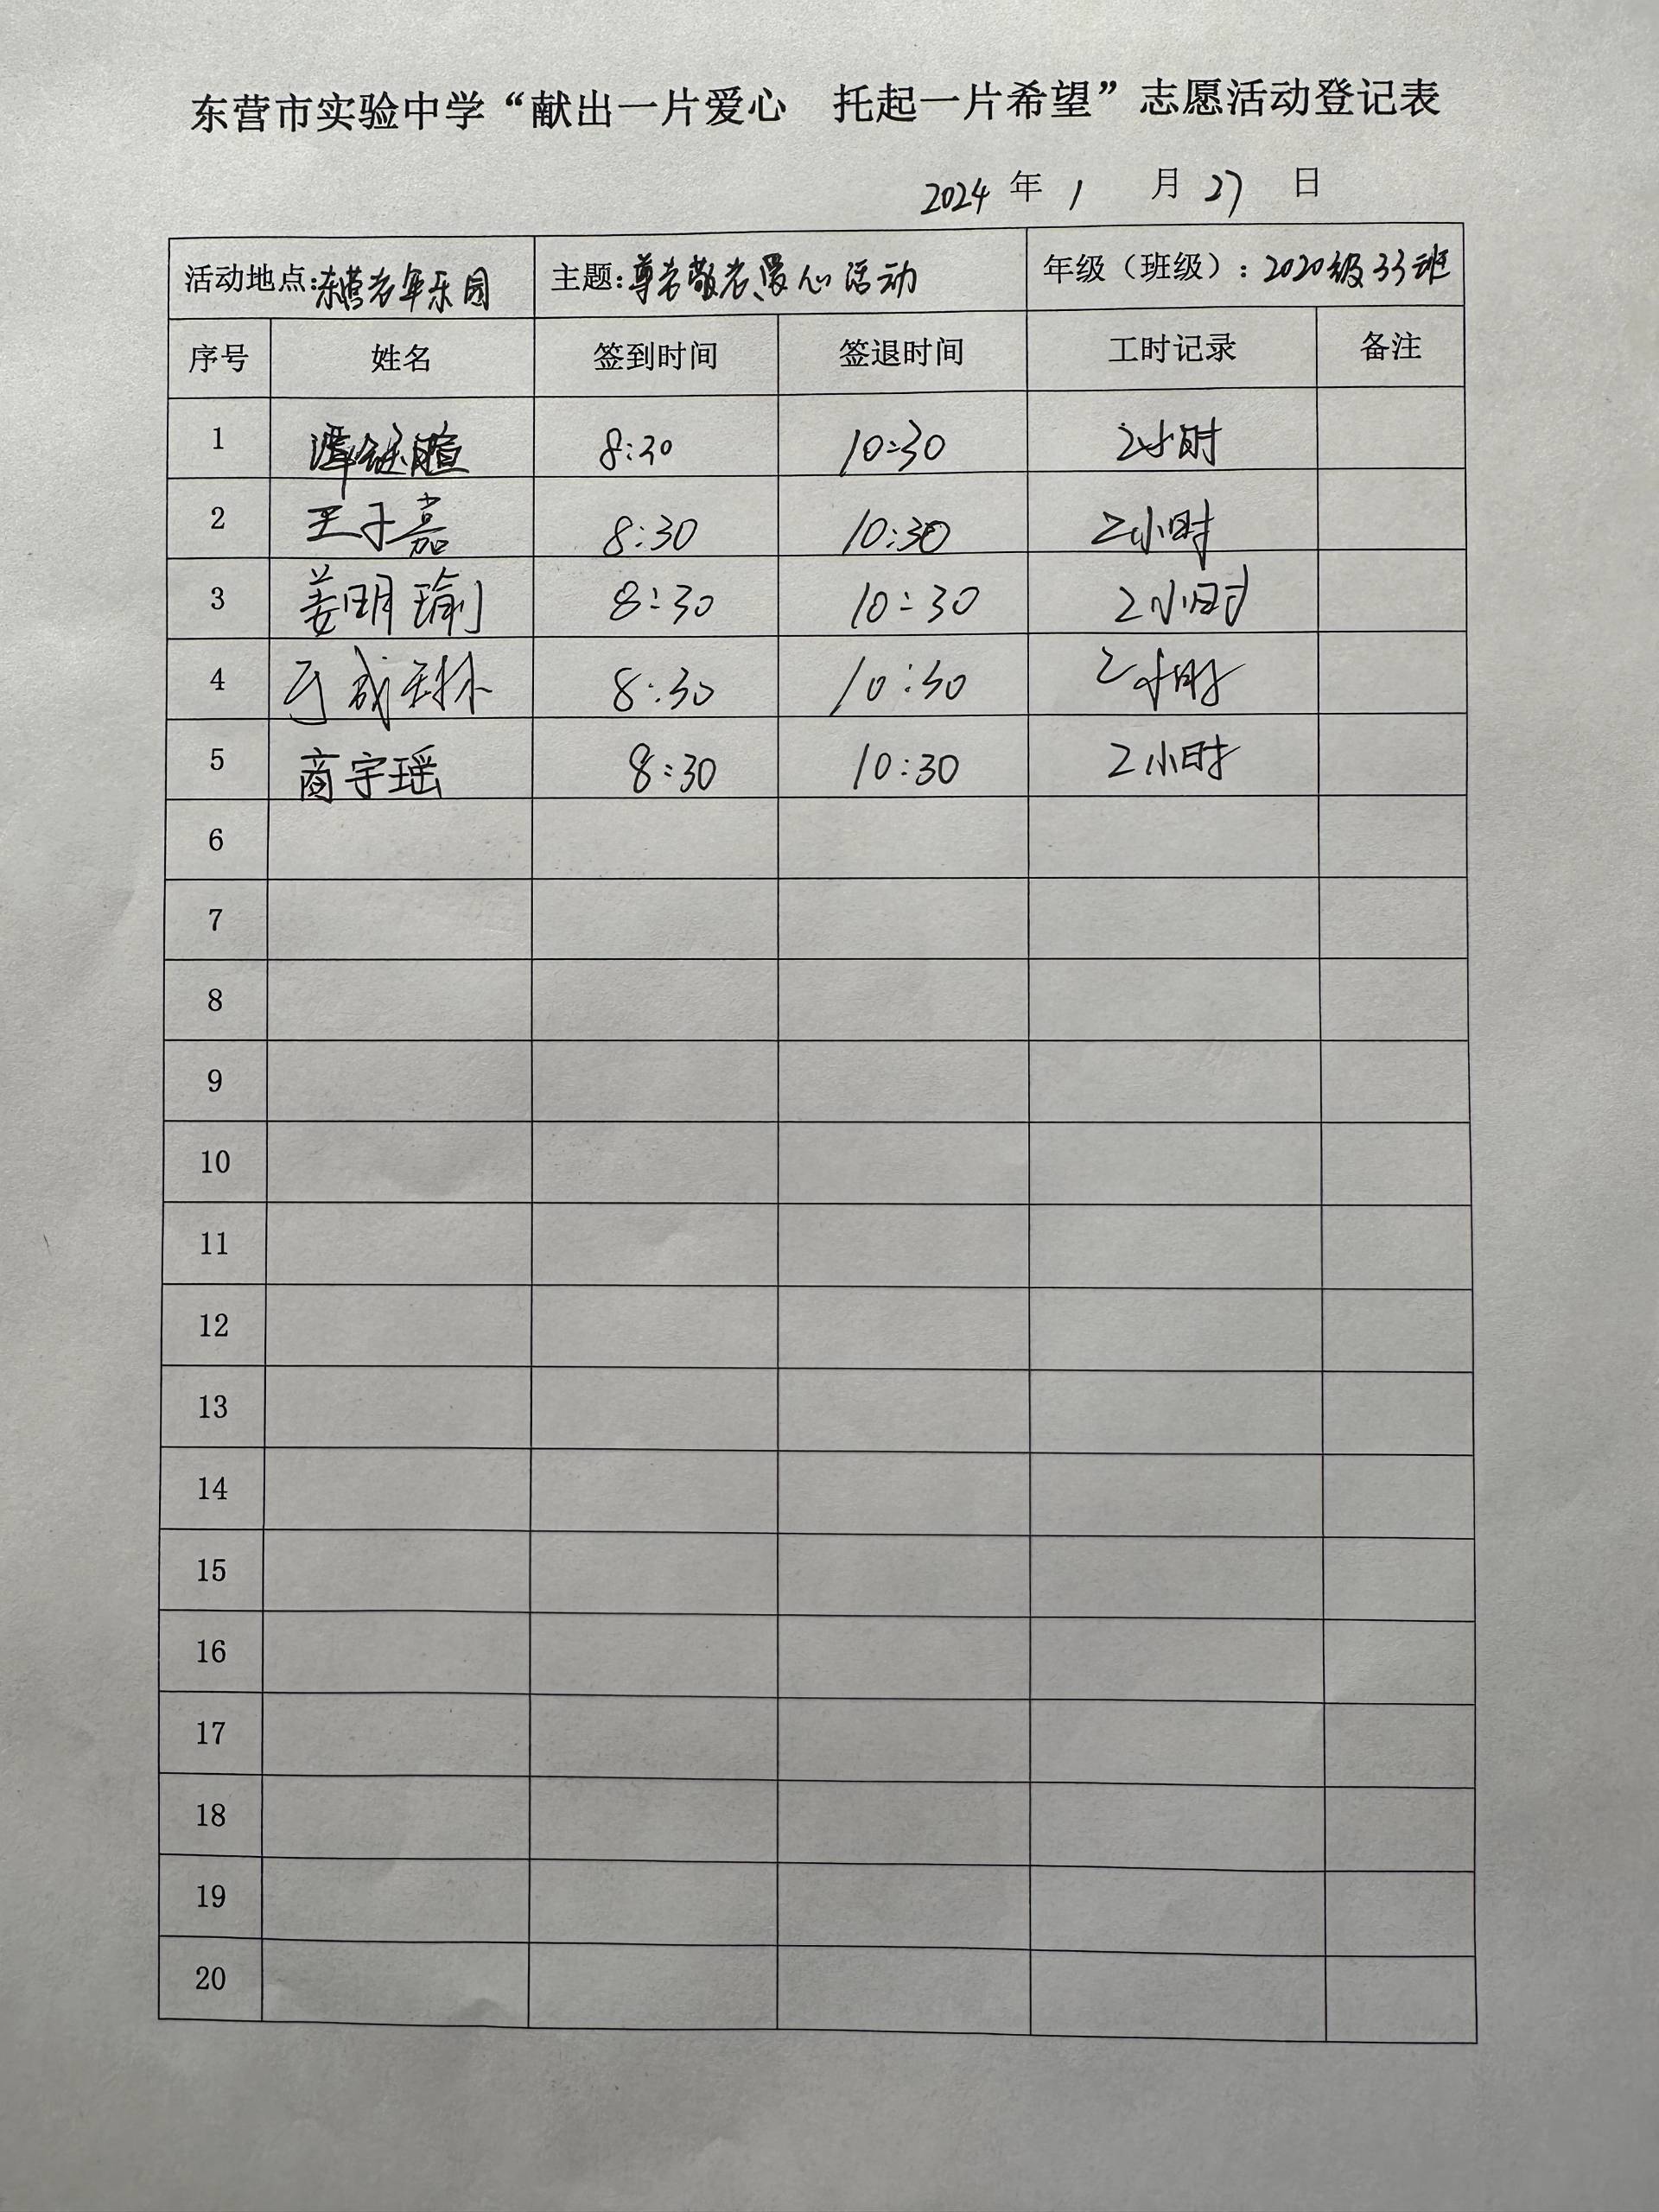 东营市实验中学“献出一片爱心 托起一片希望”志愿活动登记表
2024 年 1 月 27 日
活动地点:东营老年乐园 主题:尊老敬老、爱心活动 年级（班级）: 2020级33班
序号 姓名 签到时间 签退时间 工时记录 备注
1 8:30 10:30 2小时
2 王子嘉 8:30 10:30 2小时
3 姜明瑜 8:30 10:30 2小时
4 于成 8:30 10:30 2小时
5 商宇瑶 8:30 10:30 2小时
6
7
8
9
10
11
12
13
14
15
16
17
18
19
20